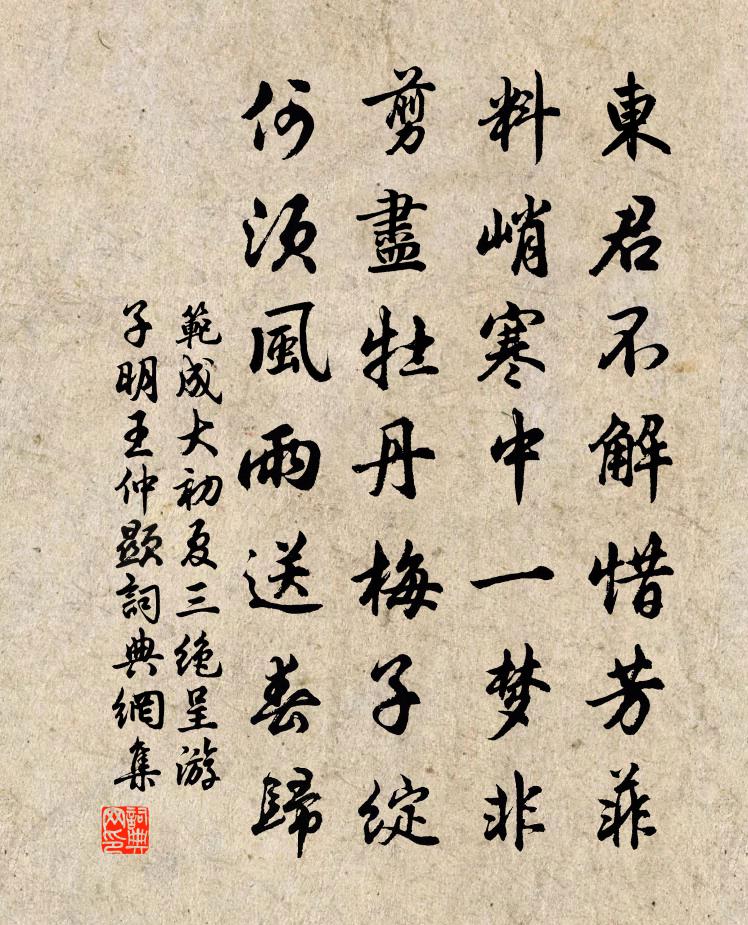 東君不解惜芳菲
料峭寒中一梦非
剪盡牡丹梅子綻
何須風雨送春歸
範成大初夏三绝呈游
子明王仲顯詞典網集
詞典网印